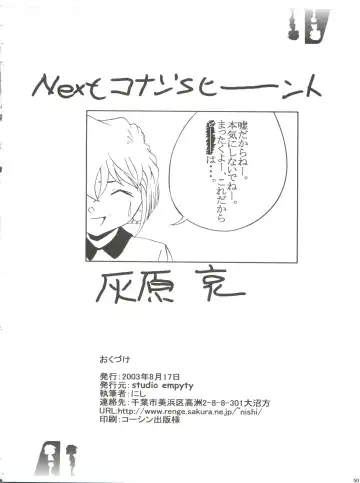 Next コナン'S ヒーーント
嘘だからねー。
本気にしないでねー。
まったくよー、これだから
は…。
灰原 哀
おくづけ
発行:2003年8月17日
発行元:studio empyty
執筆者:にし
連絡先:千葉市美浜区高洲2-8-8-301大沼方
URL:http://www.renge.sakura.ne.jp/~nishi/
印刷:コーシン出版様
50